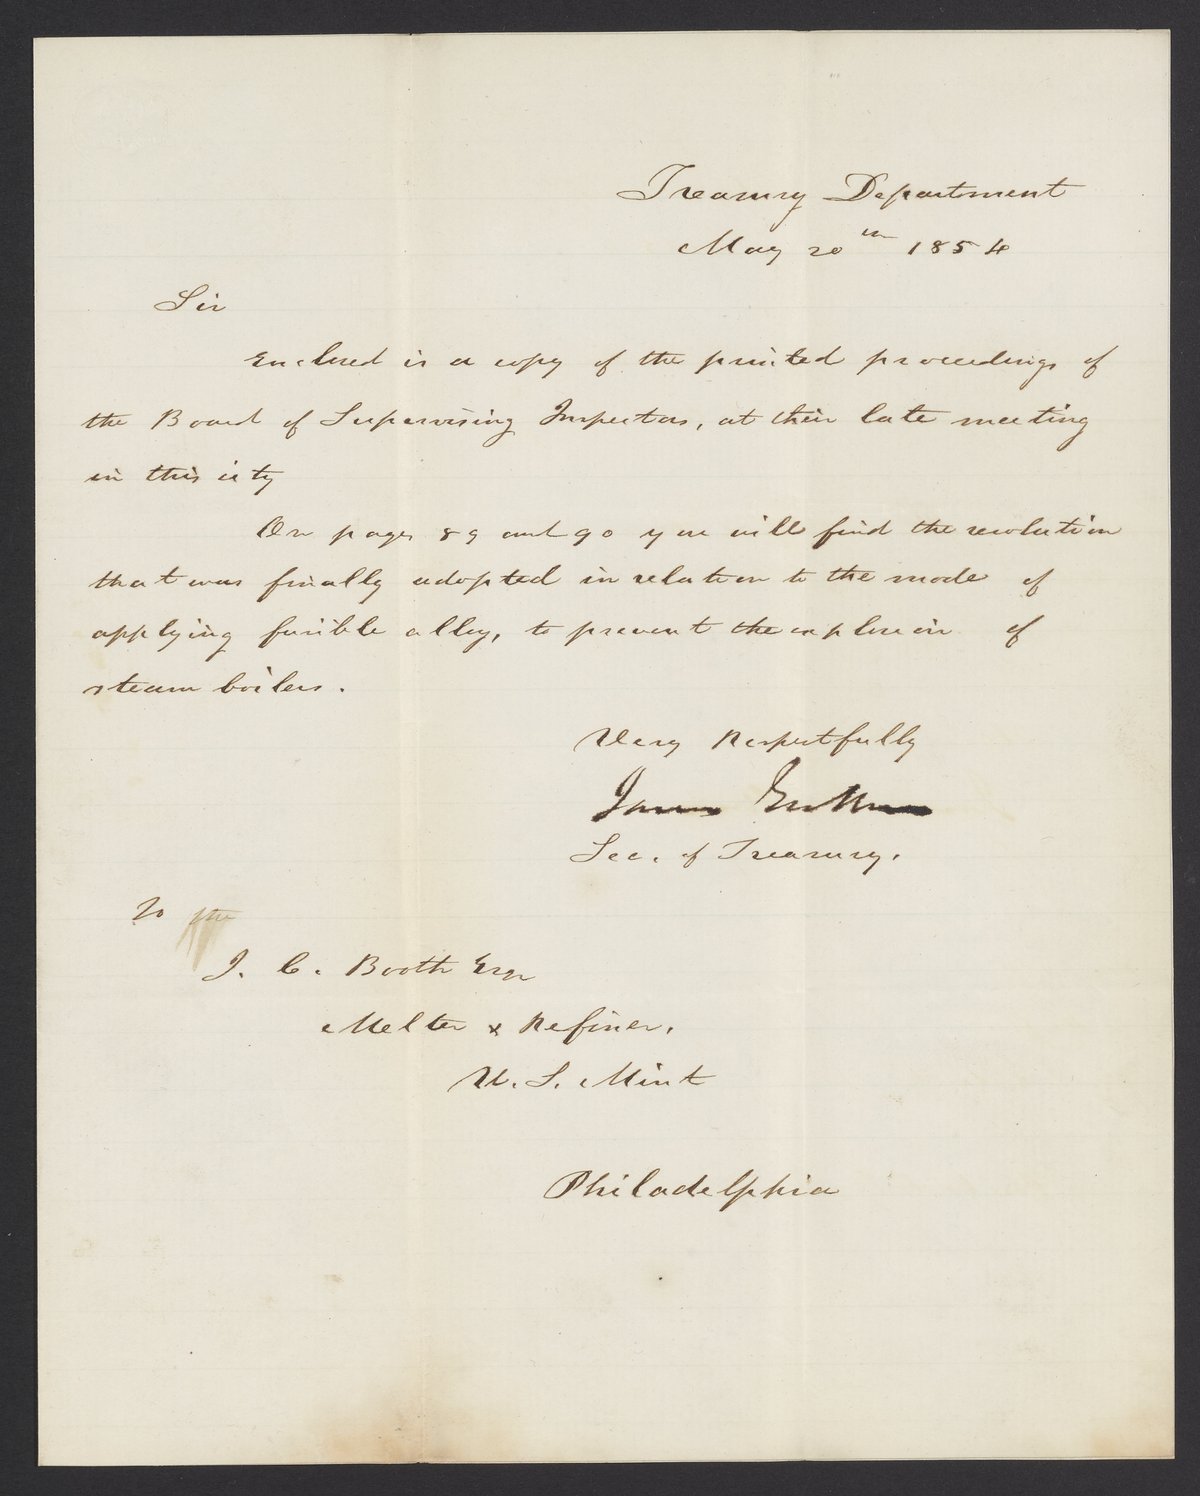 Treasury Department
May 20th 1854
Sir
Enclosed is a copy of the printed proceedings of
the Board of Supervising Inspectors, at their late meeting
in this city
On pages 89 and 90 you will find the resolution
that was finally adopted in relation to the mode of
applying fusible alloy, to prevent the explosion of
steam boilers.
Very Respectfully
James Guthrie
Sec. of Treasury.
To
J. C. Booth Esqr
Melter & Refiner.
U. S. Mint
Philadelphia